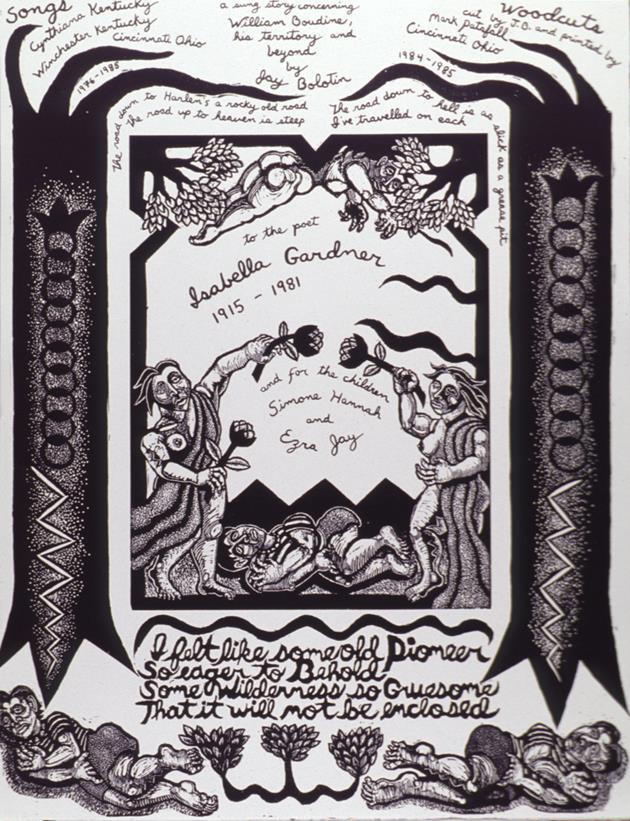 Songs
Cynthiana Kentucky
Winchester Kentucky
Cincinnati Ohio
1976-1985
a sung story concerning
William Boudine,
his territory and
beyond
by
Jay Bolotin
Woodcuts
cut by J.B. and printed by
Mark Patsfall
Cincinnati Ohio
1984-1985
the road down to Harlen's a rocky old road
the road up to heaven is steep
The road down to hell is as slick as a grease pit
I've travelled on each
to the poet
Isabella Gardner
1915 - 1981
and for the children
Simone Hannah
and
Ezra Jay
I felt like some old Pioneer
So eager to Behold
Some Wilderness so Gruesome
That it will not be enclosed